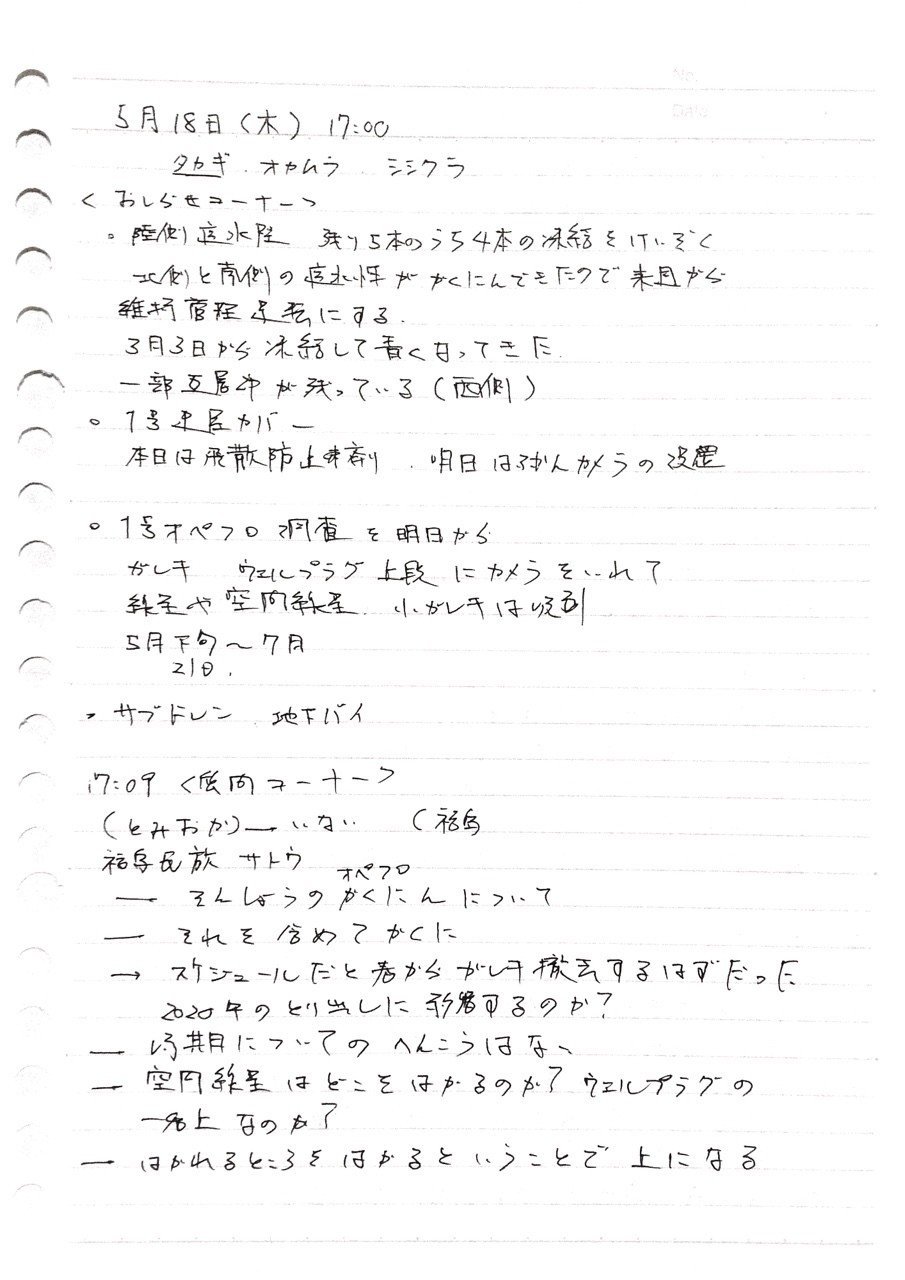 No.
Date
5月18日(木) 17:00
タカギ . オカムラ . シシクラ
<おしらせコーナー>
。陸側遮水壁 残り5本のうち4本の凍結をけいぞく
北側と南側の遮水性がかくにんできたので来月から
維持管理運転にする.
3月3日から凍結して青くなってきた.
一部 が残っている(西側)
○ 1号建屋カバー
本日は飛散防止剤 . 明日はふかんカメラの設置
○ 1号オペフロ 調査を明日から
ガレキ ウェルプラグ上段にカメラをいれて
線量や空間線量. 小ガレキは吸引
5月下旬〜7月
21日.
・サブドレン 地下バイ
17:09 <質問コーナー>
(とみおか)― いない (福島
福島民族 サトウ
オペフロ
― そんしょうのかくにんについて
― それを含めてかくに
→ スケジュールだと春からガレキ撤去するはずだった
2020年のとり出しに影響するのか?
― 時期についてのへんこうはない
― 空間線量はどこをはかるのか? ウェルプラグの
一番上なのか?
― はかれるところをはかるということで上になる